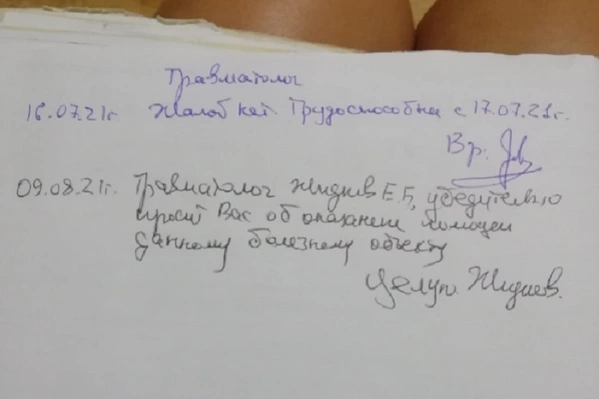 Травматолог
16.07.21г. Жалоб нет. Трудоспособна с 17.07.21г.
Вр.
09.08.21г. Травматолог Жидиев Е.Б, убедительно
просит Вас об оказанеи помощи
данному болезному объекту
Целую. Жидиев.